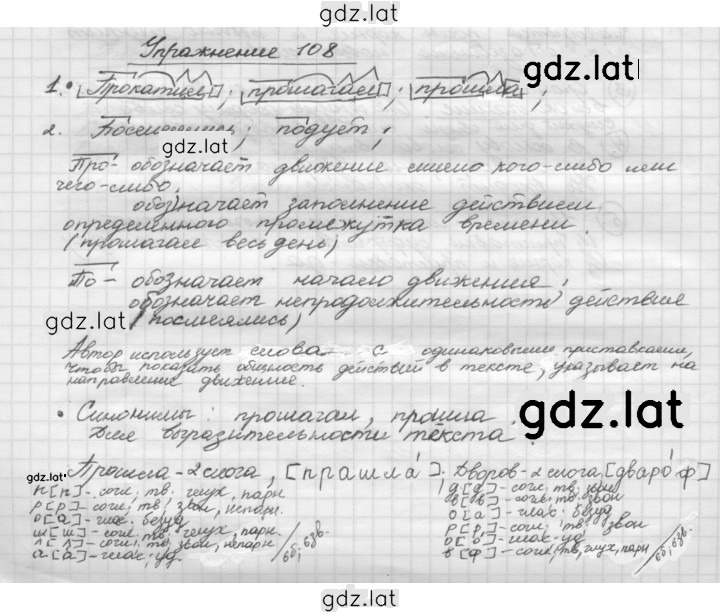 gdz.lat
Упражнение 108
gdz.lat
1. • Прокатил ; прошагал ; прошла ;
2. подует ;
gdz.lat
Про- обозначает движение мимо кого-либо или
чего-либо,
обозначает заполнение действием
определенного промежутка времени.
(прошагал весь день)
По- обозначает начало движения;
обозначает непродолжительность действие
gdz.lat
(посмеялись)
Автор использует слова с одинаковыми приставками,
чтобы показать общность действий в тексте, указывает на
направление движение.
• Синонимы: прошагал, прошла
gdz.lat
Для выразительности текста.
gdz.lat
Прошла - 2 слога, [прашла́]. Дворов - 2 слога, [дваро́ф]
п [п] - согл, тв, глух, парн
р [р] - согл, тв, звон, непарн.
о [а] - глас. безуд
ш [ш] - согл, тв, глух, парн.
л [л] - согл, тв, звон, непарн
а [а] - глас. уд
/6б; 6зв.
д [д] - согл. тв. звон
в [в] - согл. тв. звон
о [а] - глас. безуд
р [р] - согл. тв. звон
о [о] - глас. уд
в [ф] - согл, тв, глух, парн
/6б; 6зв.
gdz.lat